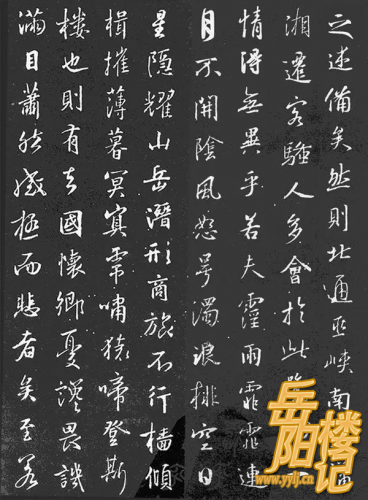 之述備矣然則北通巫峽南
湘遷客騷人多會於此
情得無異乎若夫霪雨霏霏連
月不開陰風怒号濁浪排空日
星隱耀山岳潛形商旅不行檣傾
楫摧薄暮冥冥虎嘯猿啼登斯
樓也則有去國懷鄉憂讒畏譏
滿目蕭然感極而悲者矣至若
岳阳楼记
www.yylj.cn